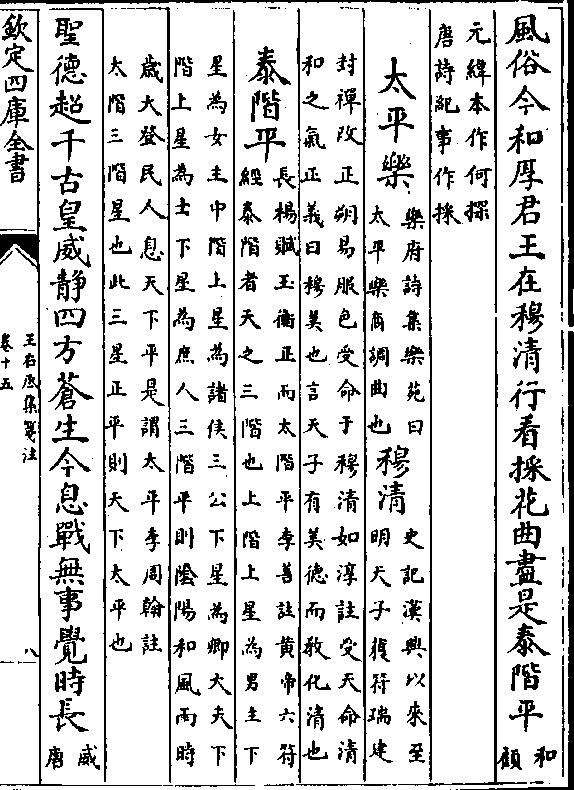 風俗今和厚君王在穆清行看採花曲盡是泰階平和
顧
元緯本作何探
唐詩紀事作採
太平樂樂府詩集樂苑曰
太平樂商調曲也
穆清史記漢興以來至
明天子獲符瑞建
封禪改正朔易服色受命于穆清如淳註受天命清
和之氣正義曰穆美也言天子有美德而教化清也
泰階平長楊賦玉衡正而太階平李善註黃帝六符
經泰階者天之三階也上階上星為男主下
星為女主中階上星為諸侯三公下星為卿大夫下
階上星為士下星為庶人三階平則陰陽和風雨時
歲大登民人息天下平是謂太平李周翰註
太階三階星也此三星正平則天下太平也
聖德超千古皇威靜四方蒼生今息戰無事覺時長威
唐
欽定四庫全書
王右丞集箋注
卷十五
八